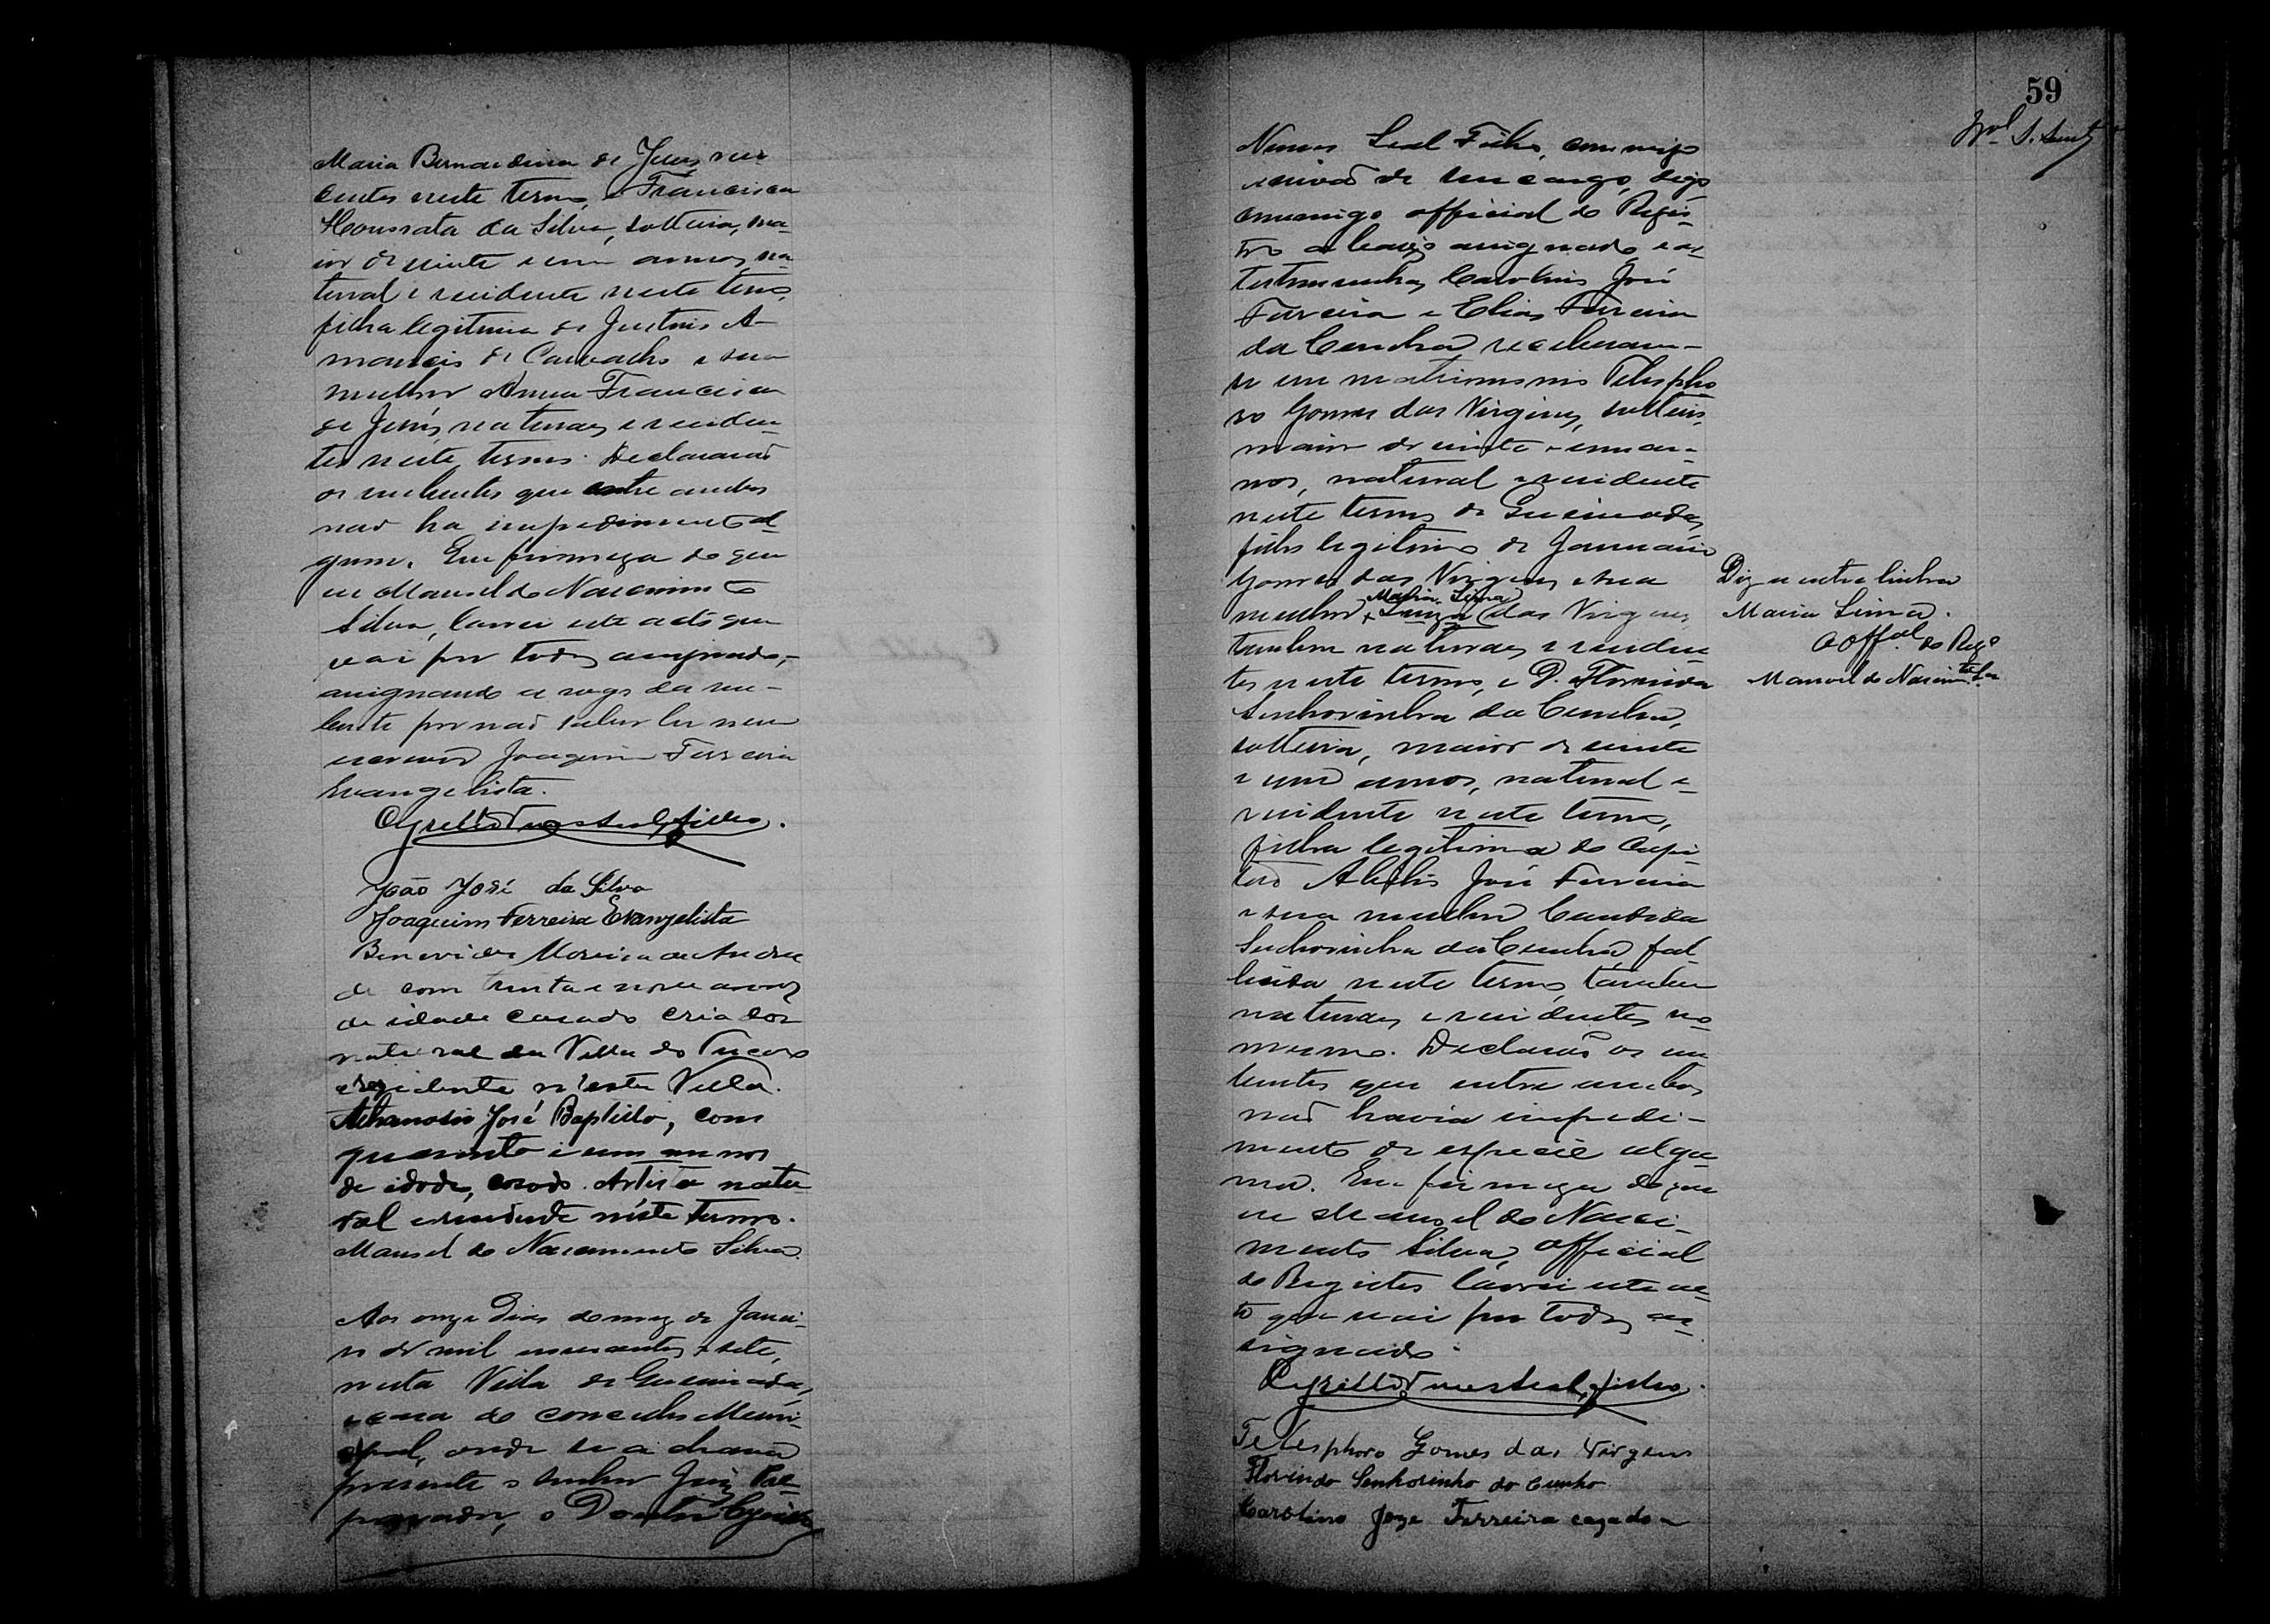 Maria Bernardina de Jesus resi
dentes neste termo, e Francisca
Honorata da Silva, solteira, ma-
ior de vinte e um annos, na-
tural e residente neste termo,
filha legitima de Justino A-
mancio de Carvalho e sua
mulher Anna Francisca
de Jesus, naturaes e residen-
tes neste termo. Declararão
os nubentes que entre ambos
não ha impedimento al-
gum. Em firmeza do que
eu Manoel do Nascimento
Silva, lavrei este acto que
vai por todos assignado,
assignando a rogo da nu-
bente por não saber ler nem
escrever Joaquim Ferreira
Evangelista.
Cyrillo Nunes Leal Filho.
João José da Silva
Joaquim Ferreira Evangelista
Benevides Moreira de Andra
de com trinta e nove annos
de idade casado criador
natural da Villa do Tucano
e rezidente n'esta Villa.
Athanasio José Baptista, com
quarenta i um annos
de idade, casado. Artista natu
ral e residente níste termo.
Manoel do Nascimento Silva
Aos onze dias do mez de Janei-
ro de mil novecentos e sete,
nesta Villa de Queimadas,
e casa do concelho Muni-
cipal, onde se achava
presente o senhor Juiz Pre-
parador, o Doutor Cyrillo
59
Nunes Leal Filho, commigo
escrivão de seu cargo, digo
commigo official do Regis-
tro abaixo assignado e as
testemunhas Carolino José
Ferreira e Elias Ferreira
da Cunha, receberam-
se em matrimonio Telespho
ro Gomes das Virgens, solteiro,
maior de vinte e um an-
nos, natural e residente
neste termo de Queimadas,
filho legitimo de Januario
Gomes das Virgens e sua
Maria Lima
mulher Luiza das Virgens
tambem naturaes e residen
tes neste termo, e D. Florinda
Senhorinha da Cunha,
solteira, maior de vinte
e um annos, natural e
residente neste termo,
filha legitima do Capi
tão José Ferreira
e sua mulher Candida
Senhorinha da Cunha, fal
lecida neste termo, tambem
naturaes e residentes no
mesmo. Declarão os nu
bentes que entre ambos
não havia impedi-
mento de especie algu
ma. Em firmeza do que
eu Manoel do Nasci-
mento Silva, official
do Registro lavrei este ac-
to que vai por todos as-
signado.
Cyrillo Nunes Leal Filho.
Telesphoro Gomes das Virgens
Florinda Senhorinha da Cunha
Carolino Joze Ferreira cazado
Diz a entre linha
Maria Lima.
O Offal do Rego
Manoel do Nascimto Sa